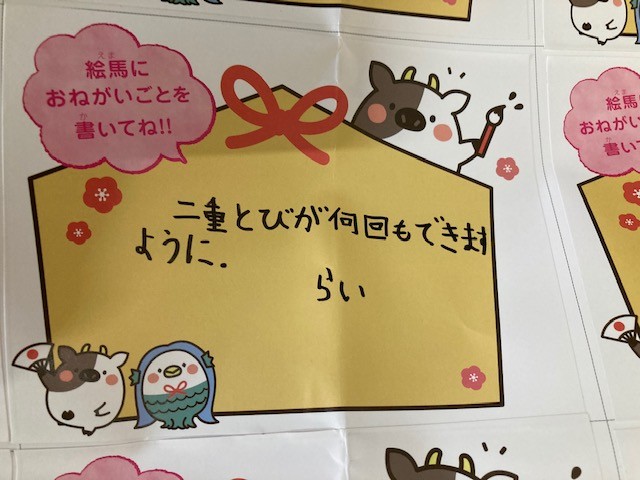 絵馬に
おねがいごとを
書いてね!!
二重とびが何回もできます
ように.
らい
絵馬
おねがい
書いて